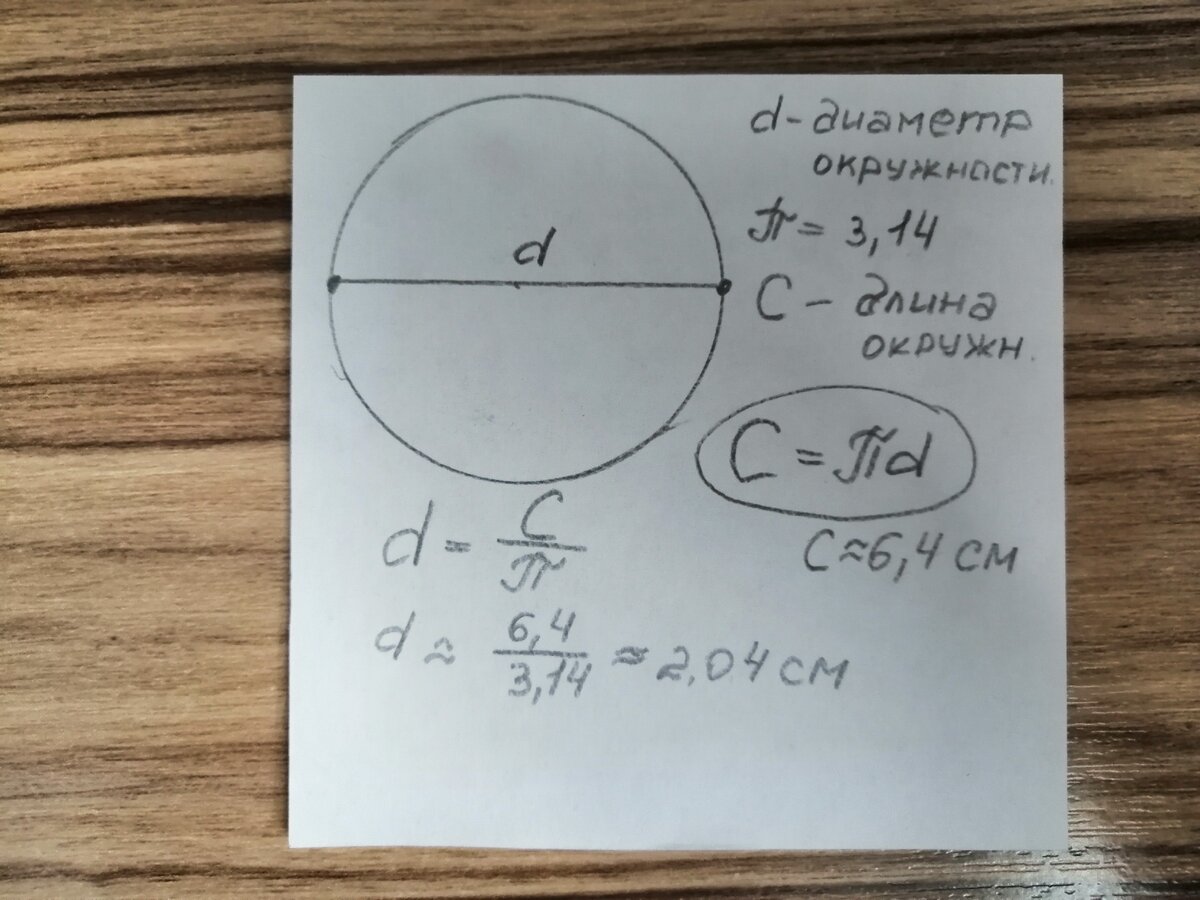 d
d - диаметр
окружности.
π = 3,14
C - длина
окружн.
C = πd
C ≈ 6,4 см
d = C/π
d ≈ 6,4/3,14 ≈ 2,04 см